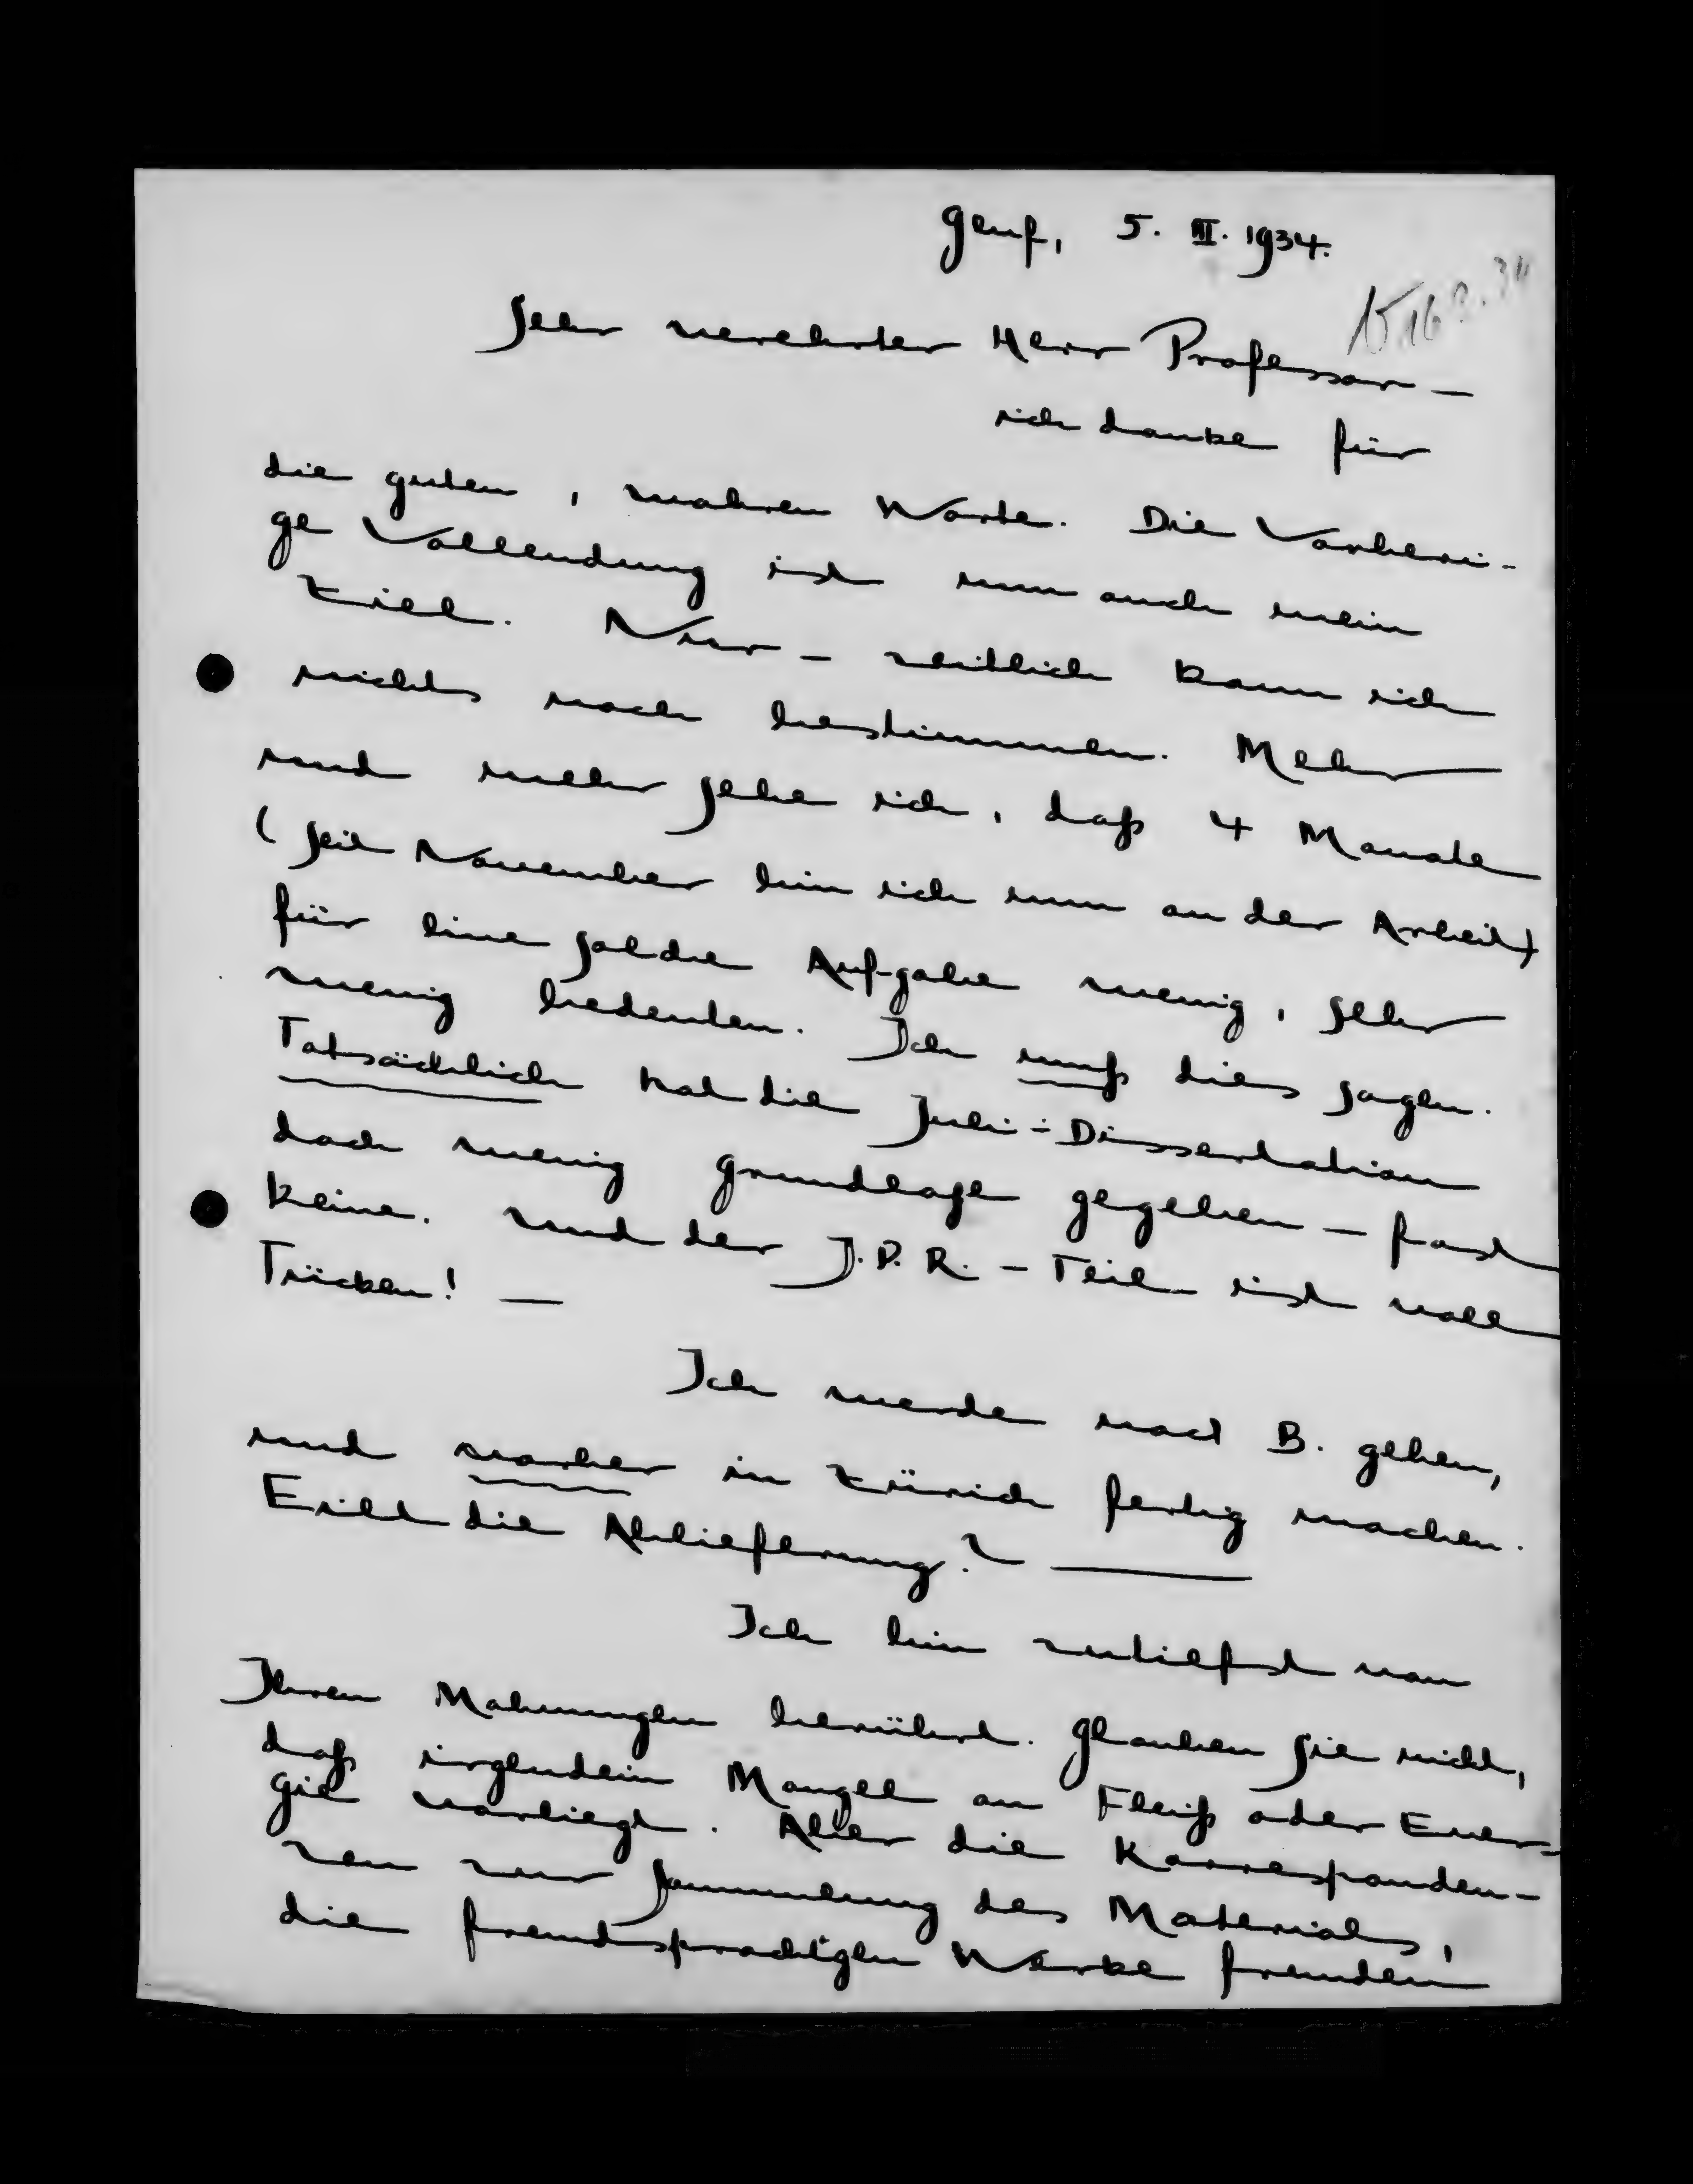 Genf, 5. III. 1934.
Sehr verehrter Herr Professor –
ich danke für
die guten, wahren Worte. Die Vorheri-
ge Vollendung ist nun auch mein
Ziel. Nur – zeitlich kann ich
nichts noch bestimmen. Mehr
und mehr sehe ich, daß 4 Monate
(seit November bin ich nun an der Arbeit)
für eine solche Aufgabe wenig, sehr
wenig bedeuten. Ich muß dies sagen.
Tatsächlich hat die Juli-Dissertation
doch wenig Grundlage gegeben – fast
keine. Und der J.P.R.-Teil ist voll
Tücken! –
Ich werde nach B. gehen,
und vorher in Zürich fertig machen.
Eilt die Ablieferung? –
Ich bin zutiefst von
Ihren Mahnungen berührt. Glauben Sie nicht,
daß irgendein Mangel an Fleiß oder Ener-
gie vorliegt. Aber die Korresponden-
zen zur Sammlung des Materials,
die fremdsprachigen Werke fremden